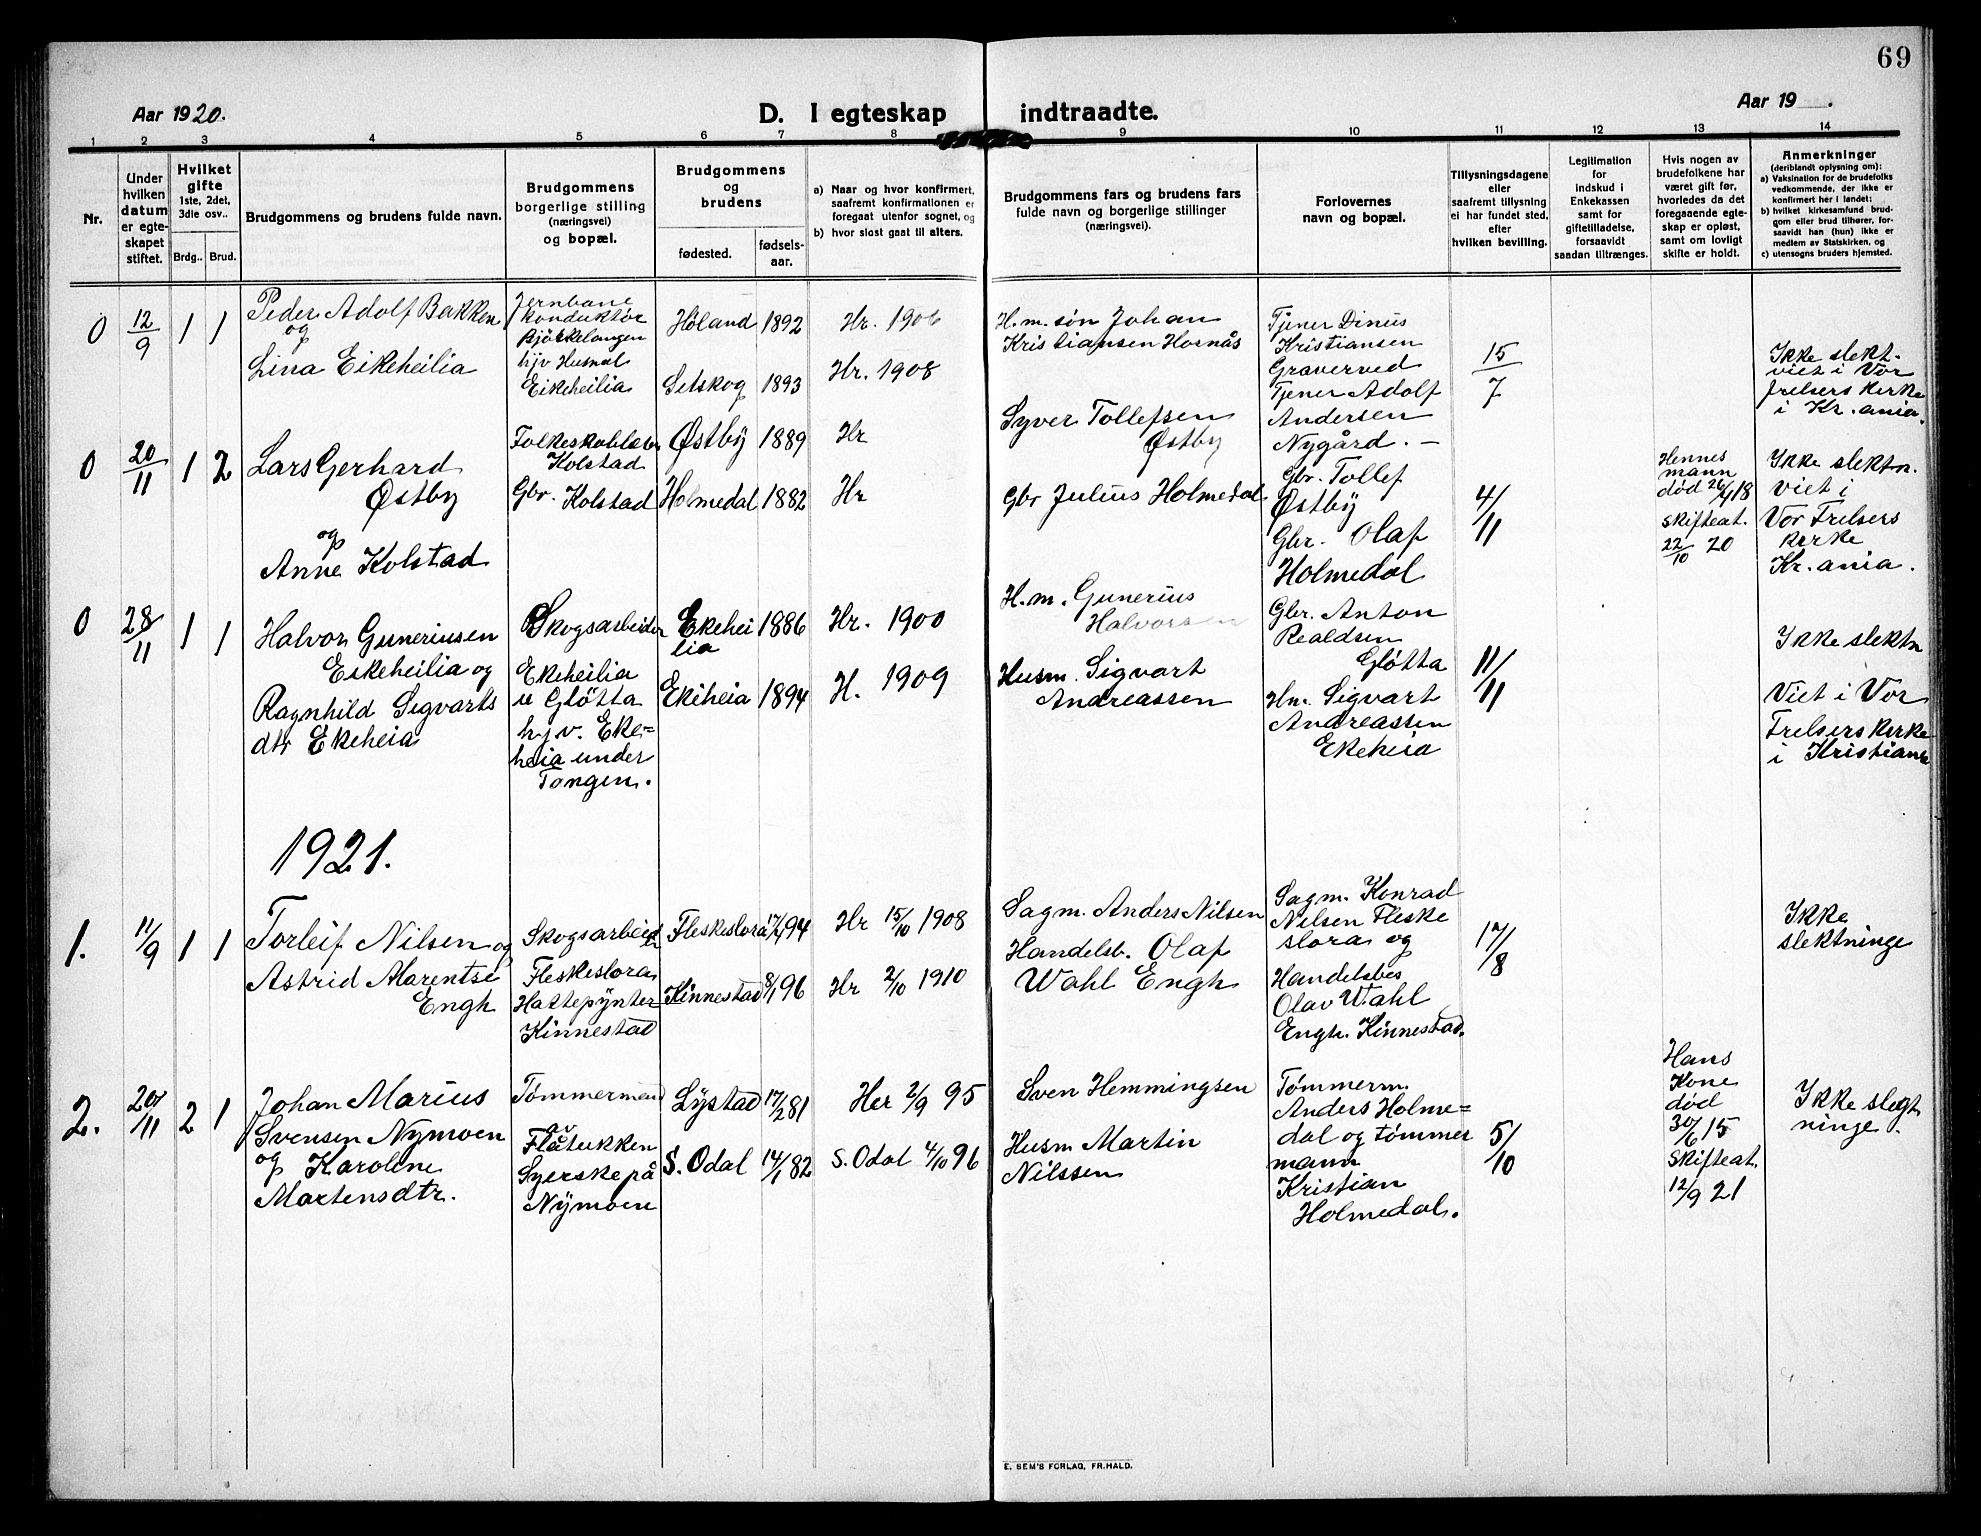 69
Aar 1920.
D. I egteskap indtraadte.
Aar 19 .
1 2 3 4 5 6 7 8 9 10 11 12 13 14
Nr.
Under
hvilken
datum
er egte-
skapet
stiftet.
Hvilket
gifte
1ste, 2det,
3die osv..
Brdg.. Brud.
Brudgommens og brudens fulde navn.
Brudgommens
borgerlige stilling
(næringsvei)
og bopæl.
Brudgommens
og
brudens
fødested.
fødsels-
aar.
a) Naar og hvor konfirmert,
saafremt konfirmationen er
foregaat utenfor sognet, og
b) hvor sidst gaat til alters.
Brudgommens fars og brudens fars
fulde navn og borgerlige stillinger
(næringsvei).
Forlovernes
navn og bopæl.
Tillysningsdagene
eller
saafremt tillysning
ei har fundet sted,
efter
hvilken bevilling.
Legitimation
for
indskud i
Enkekassen
samt for
giftetilladelse,
forsaavidt
saadan tiltrænges.
Hvis nogen av
brudefolkene har
været gift før,
hvorledes da det
foregaaende egte-
skap er opløst,
samt om lovligt
skifte er holdt.
Anmerkninger
(deriblandt oplysning om):
a) Vaksination for de brudefolks
vedkommende, der ikke er
konfirmert her i landet:
b) hvilket kirkesamfund brud-
gom eller brud tilhører, for-
saavidt han (hun) ikke er
medlem av Statskirken, og
c) utensogns bruders hjemsted.
0 12/9 1 1
Peder Adolf Bakken
og
Lina Eikeheilia
Jernbane
konduktør
Bjørkelangen
hjv Husmol
Eikeheilia
Høland 1892
Setskog 1893
Hr. 1906
Hr. 1908
H.m. søn Johan
Kristiansen Hornås
Tjener Dinus
Kristiansen
Graverved
Tjener Adolf
Andersen
Nygård. –
15/7
Ikke slekt.
viet i Vor
Frelsers kirke
i Kr.ania.
0 20/11 1 2
Lars Gerhard
Østby
og
Anne Kolstad
Kolstad
Gbr. Kolstad
Østby 1889
Holmedal 1882
Hr
Hr
Syver Tollefsen
Østby
Gbr Julius Holmedal
Gbr. Tollef
Østby
Gbr. Olaf
Holmedal
4/11
Hennes
mann
død 26/4 18
skifteat.
22/10 20
Ikke slektn.
viet i
Vor Frelsers
kirke
Kr.ania.
0 28/11 1 1
Halvor Guneriusen
Eikeheilia og
Ragnhild Sigvarts
dtr Ekeheia
Skogsarbeider
Ekeheilia
u Gløtta
hjv. Eke=
heia under
Tangen.
Ekehei
lia
1886
Ekeheia 1894
Hr. 1900
H. 1909
H.m. Gunerius
Halvorsen
Husm. Sigvart
Andreassen
Gbr. Anton
Realdsen
Gløtta
Hm. Sigvart
Andreassen
Ekeheia
11/11
Ikke slektn
Viet i Vor
Frelsers kirke
i Kristiania
1921.
1. 11/9 1 1
Torleif Nilsen og
Astrid Marentse
Engh
Skogsarbeider
Fleskeslora
Hattepynter
Kinnestad
Fleskeslora 17/4 94
Kinnestad 8/1 96
Hr 15/10 1908
Hr 2/10 1910
Sagm. Anders Nilsen
Handelsb. Olaf
Wahl Engh
Sagm. Konrad
Nilsen Fleske
slora og
Handelsbes
Olav Wahl
Engh. Kinnestad.
17/8
Ikke
slektninge
2. 20/11 2 1
Johan Marius
Svensen Nymoen
og Karoline
Martensdtr.
Tømmermand
av
Flåtukken
Syerske på
Nymoen
Lystad 17/2 81
S. Odal 14/1 82
Her 2/9 95
S. Odal 4/10 96
Sven Hemmingsen
Husm Martin
Nilssen
Tømmerm.
Anders Holme=
dal og tømmer
mann
Kristian
Holmedal.
5/10
Hans
Kone
død
30/6 15
skifteat.
12/9 21
Ikke slegt
ninge.
E. SEM'S FORLAG, FR.HALD.